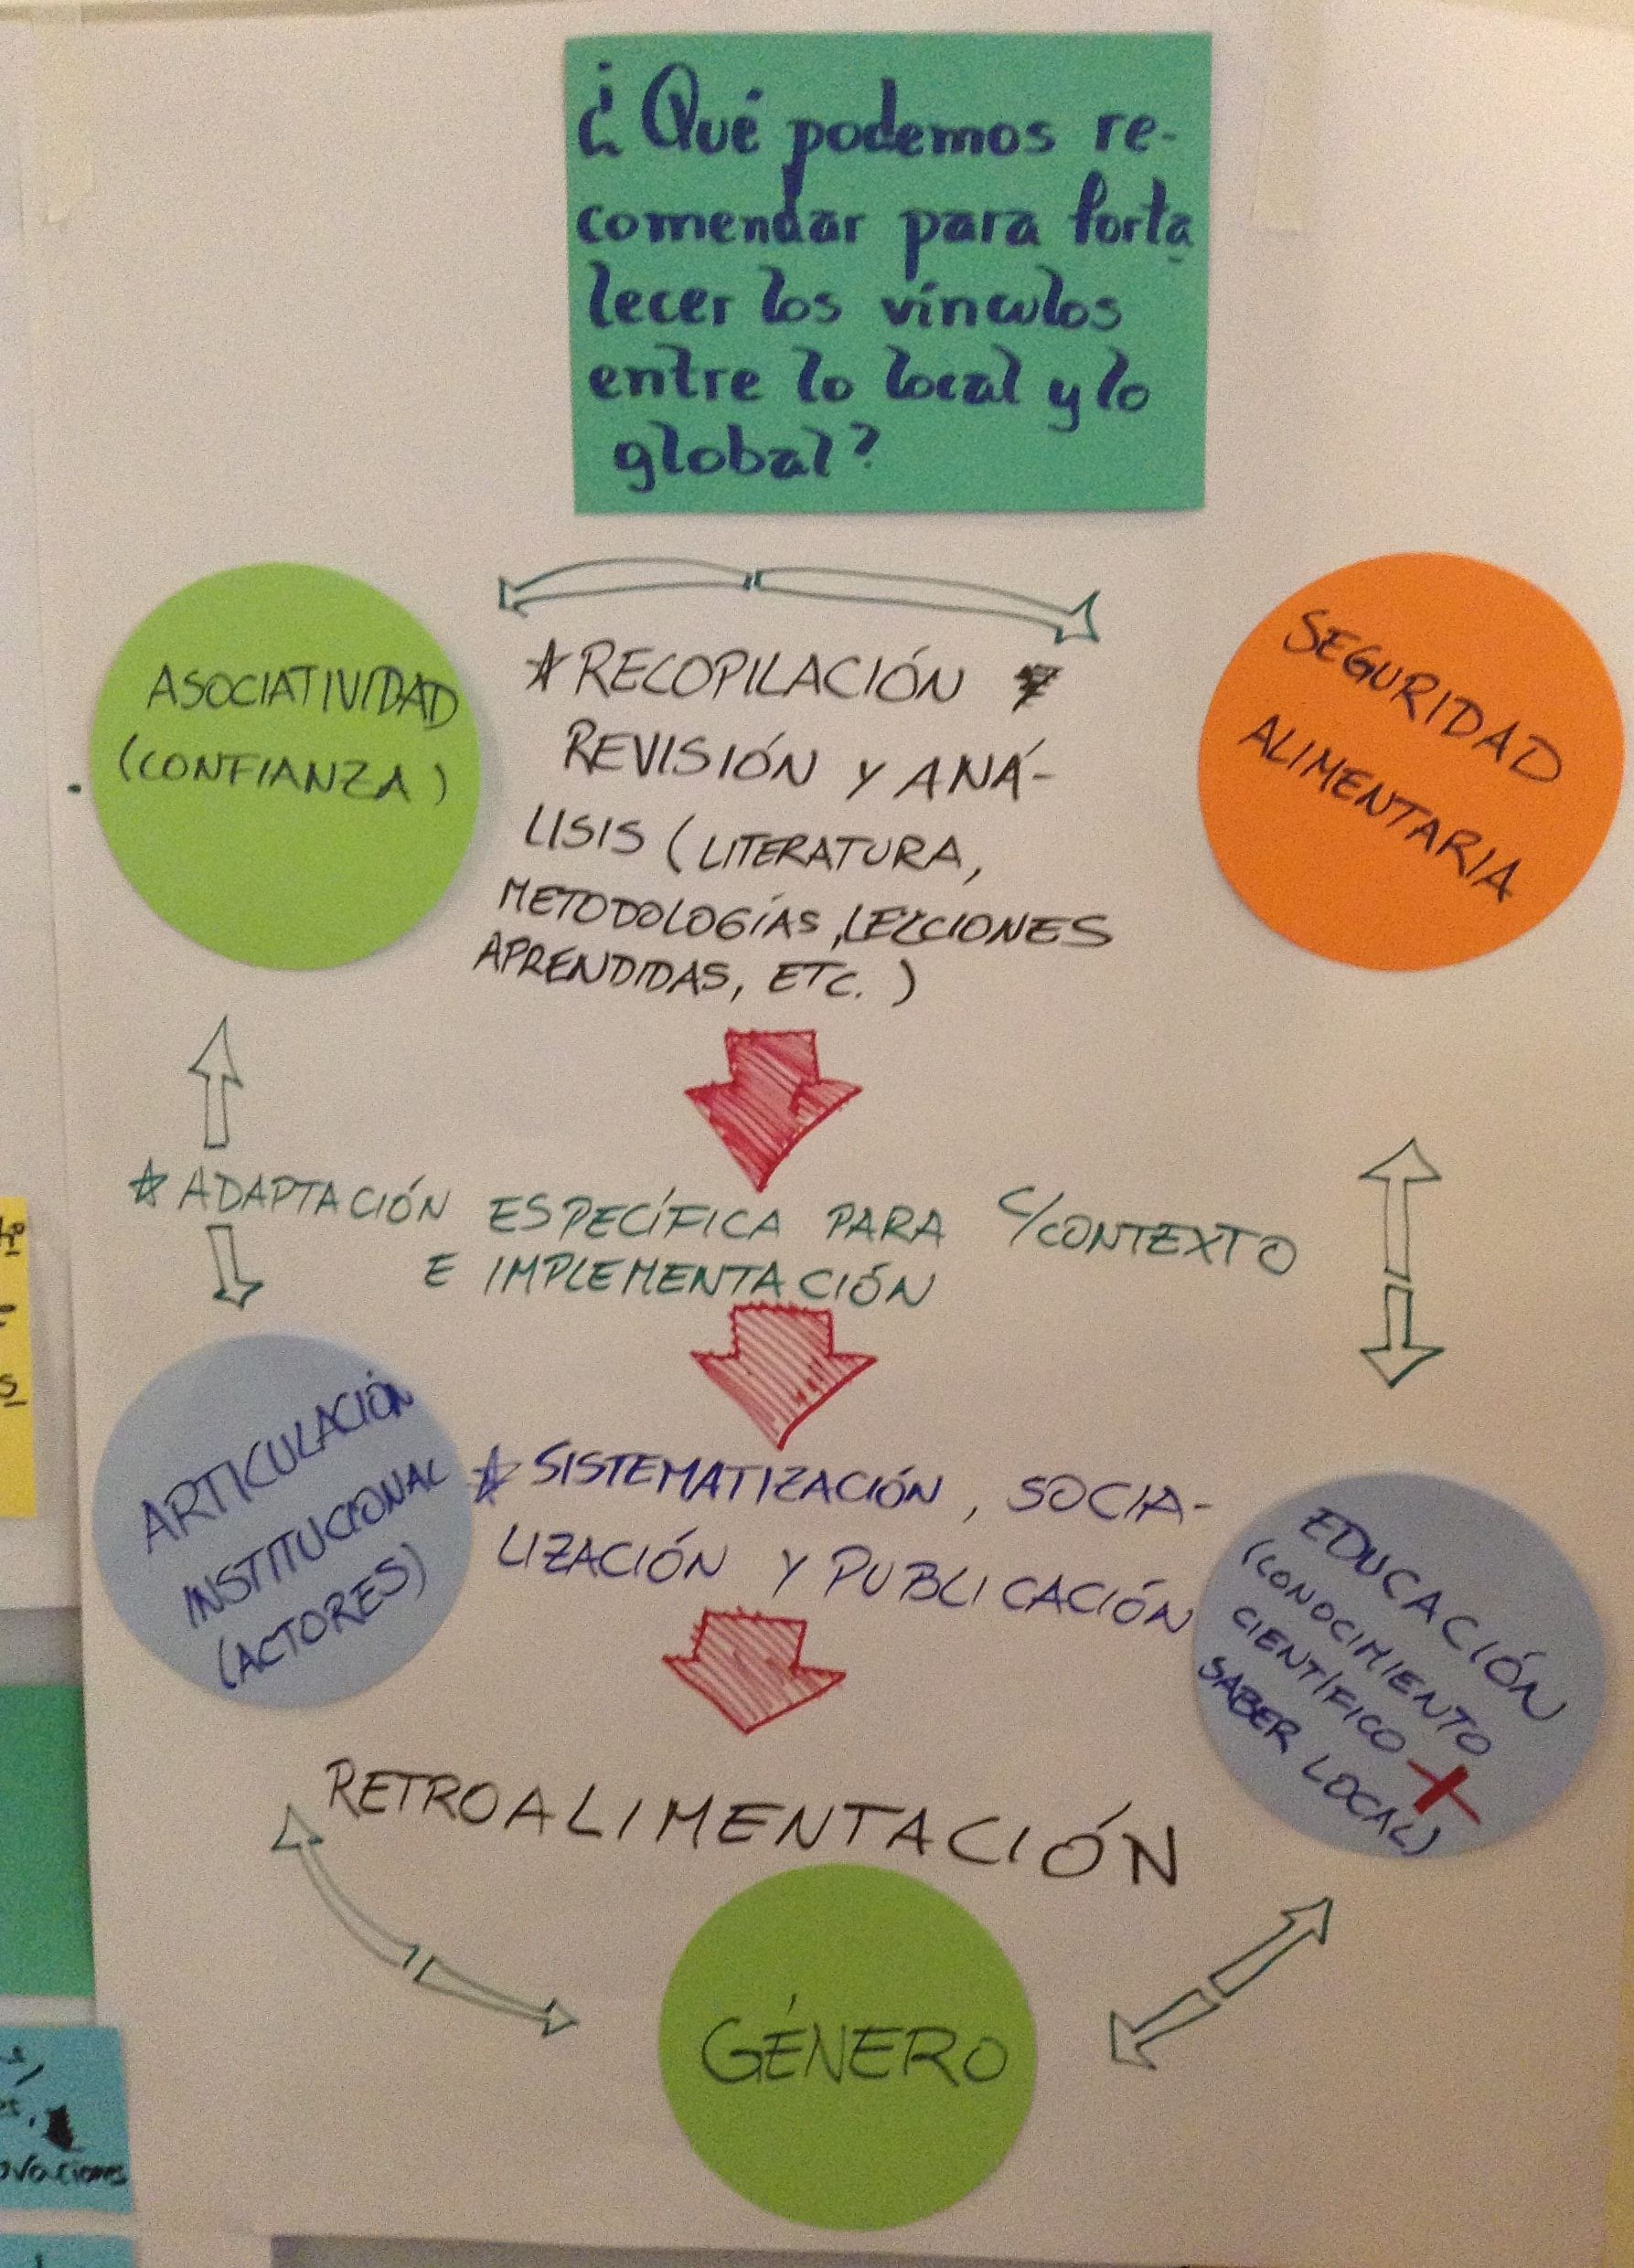 ¿Qué podemos re-
comendar para forta
lecer los vínculos
entre lo local y lo
global?
ASOCIATIVIDAD
(CONFIANZA)
RECOPILACIÓN
REVISIÓN Y ANÁ-
LISIS (LITERATURA,
METODOLOGÍAS, LECCIONES
APRENDIDAS, ETC.)
SEGURIDAD
ALIMENTARIA
ADAPTACIÓN ESPECÍFICA PARA C/CONTEXTO
E IMPLEMENTACIÓN
ARTICULACIÓN
INSTITUCIONAL
(ACTORES)
SISTEMATIZACIÓN, SOCIA-
LIZACIÓN Y PUBLICACIÓN
EDUCACIÓN
(CONOCIMIENTO
CIENTÍFICO +
SABER LOCAL)
RETROALIMENTACIÓN
GÉNERO